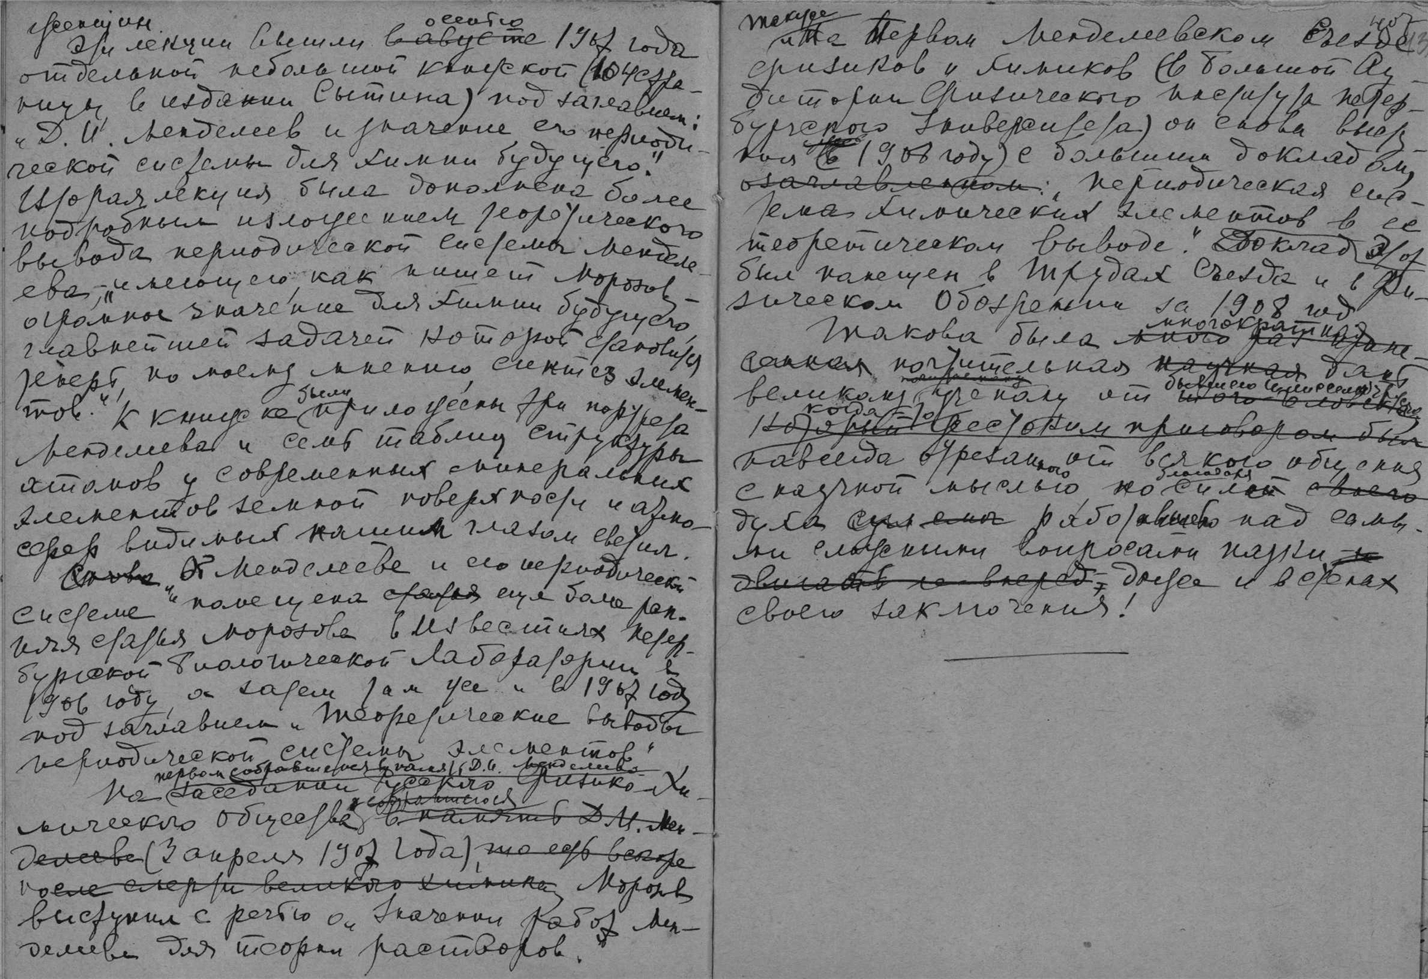 женщин.
Эти лекции вышли в августе осенью 1907 года
отдельной небольшой книжкой (104 стра-
ницы в издании Сытина) под заглавием:
„Д. И. Менделеев и значение его периоди-
ческой системы для химии будущего."
Вторая лекция была дополнена более
подробным изложением теоретического
вывода периодической системы Менделе-
ева, „имеющего, как пишет Морозов
огромное значение для химии будущего,
главнейшей задачей которой становится
теперь, по моему мнению, синтез элемен-
тов." К книжке были приложены три портрета
Менделеева и семь таблиц структуры
атомов у современных минеральных
элементов земной поверхности и атмо-
сфер видимых нашим глазом светил.
О Менделееве и его периодической
системе" помещена статья еще более ран-
няя статья Морозова в Известиях Петер-
бургской биологической Лаборатории в
1906 году, а затем там же и в 1907 году
под заглавием „Теоретические выводы
периодической системы элементов"
первом собравшемся в память Д. И. Менделеева
На заседании русского Физико-Хи-
мического общества, собравшегося в память Д. И. Мен-
делеева (3 апреля 1907 года), то есть вскоре
после смерти великого химика, Морозов
выступил с речью о „Значении работ Мен-
делеева для теории растворов."
также
На Первом Менделеевском Съезде
физиков и химиков (в большой Ау-
дитории Физического института Петер-
бургского Университета) он снова высту-
пил (в 1908 году) с большим докладом,
озаглавленном: „Периодическая сис-
тема химических элементов в ее
теоретическом выводе." Доклад этот
был помещен в Трудах Съезда и в Фи-
зическом Обозрении за 1908 год
Такова была многократная
почтительная научная дань
великому ученому от бывшего
когда-то
который жестоким приговором был
навсегда отрезанного от всякого общения
с научной мыслью, но силой своего
духа работавшего над самы-
ми сложными вопросами науки и
двигать ее вперед, даже и в стенах
своего заключения!